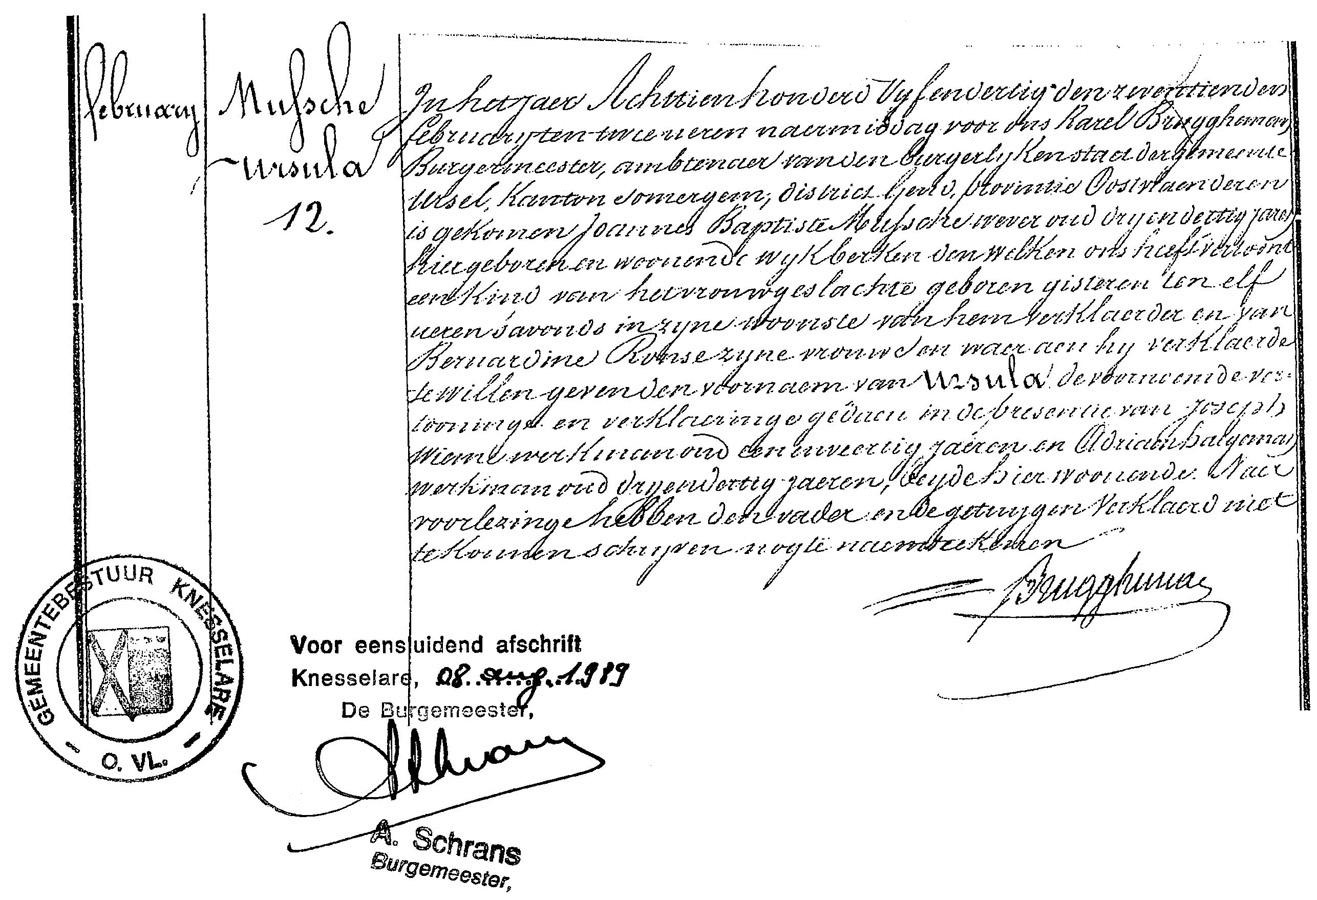 february
Mussche
Ursula
12.
In het jaer Achttien honderd Vyf en dertig den twentien den
february ten twee ueren naermiddag voor ons Karel Brugghman,
Burgermeester, ambtenaer van den burgerlyken staet der gemeente
Ursel, Kanton Somergem, district Gend, provintie Oostvlaenderen
is gekomen Joannes Baptiste Mussche wever oud dry en dertig jaren
hier geboren en woonende wyk berken den welken ons heeft vertoont
een Kind van het vrouwgeslachte geboren gisteren ten elf
ueren s'avonds in zyne woonste van hem verklaerder en van
Bernardine Ronse zyne vrouw en waer aen hy verklaerde
te willen geven den voornaem van Ursula de voornoemde ver-
tooninge en verklaeringe gedaen in de presentie van Joseph
Wieme werkman oud een en veertig jaeren en Adriaen
werkman oud dry en dertig jaeren, beyde hier woonende. Naer
voorlezinge hebben den vader en de getuygen verklaerd niet
te konnen schryven nogte naemteekenen
Brugghman
GEMEENTEBESTUUR KNESSELARE
- O. VL. -
Voor eensluidend afschrift
Knesselare, 08. aug. 1989
De Burgemeester,
A. Schrans
Burgemeester,